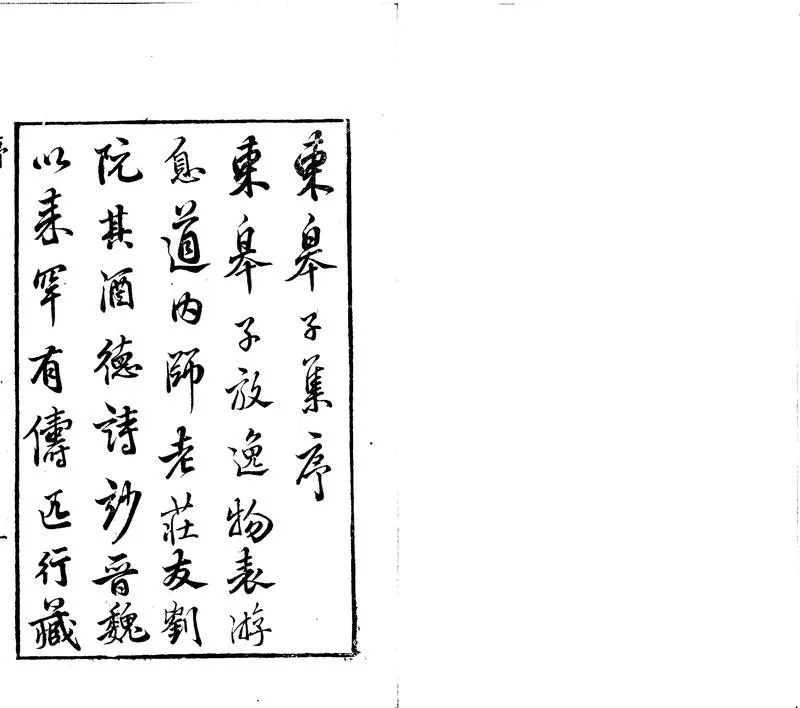 東皋子集序
東皋子放逸物表游
息道内師老莊友劉
阮其酒德詩妙晋魏
以来罕有儔匹行藏